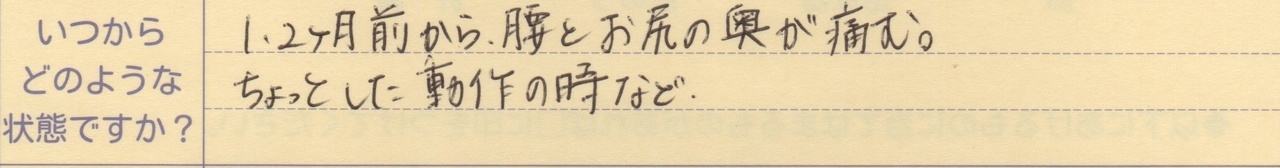 いつから
どのような
状態ですか?
1、2ヶ月前から、腰とお尻の奥が痛む。
ちょっとした動作の時など.